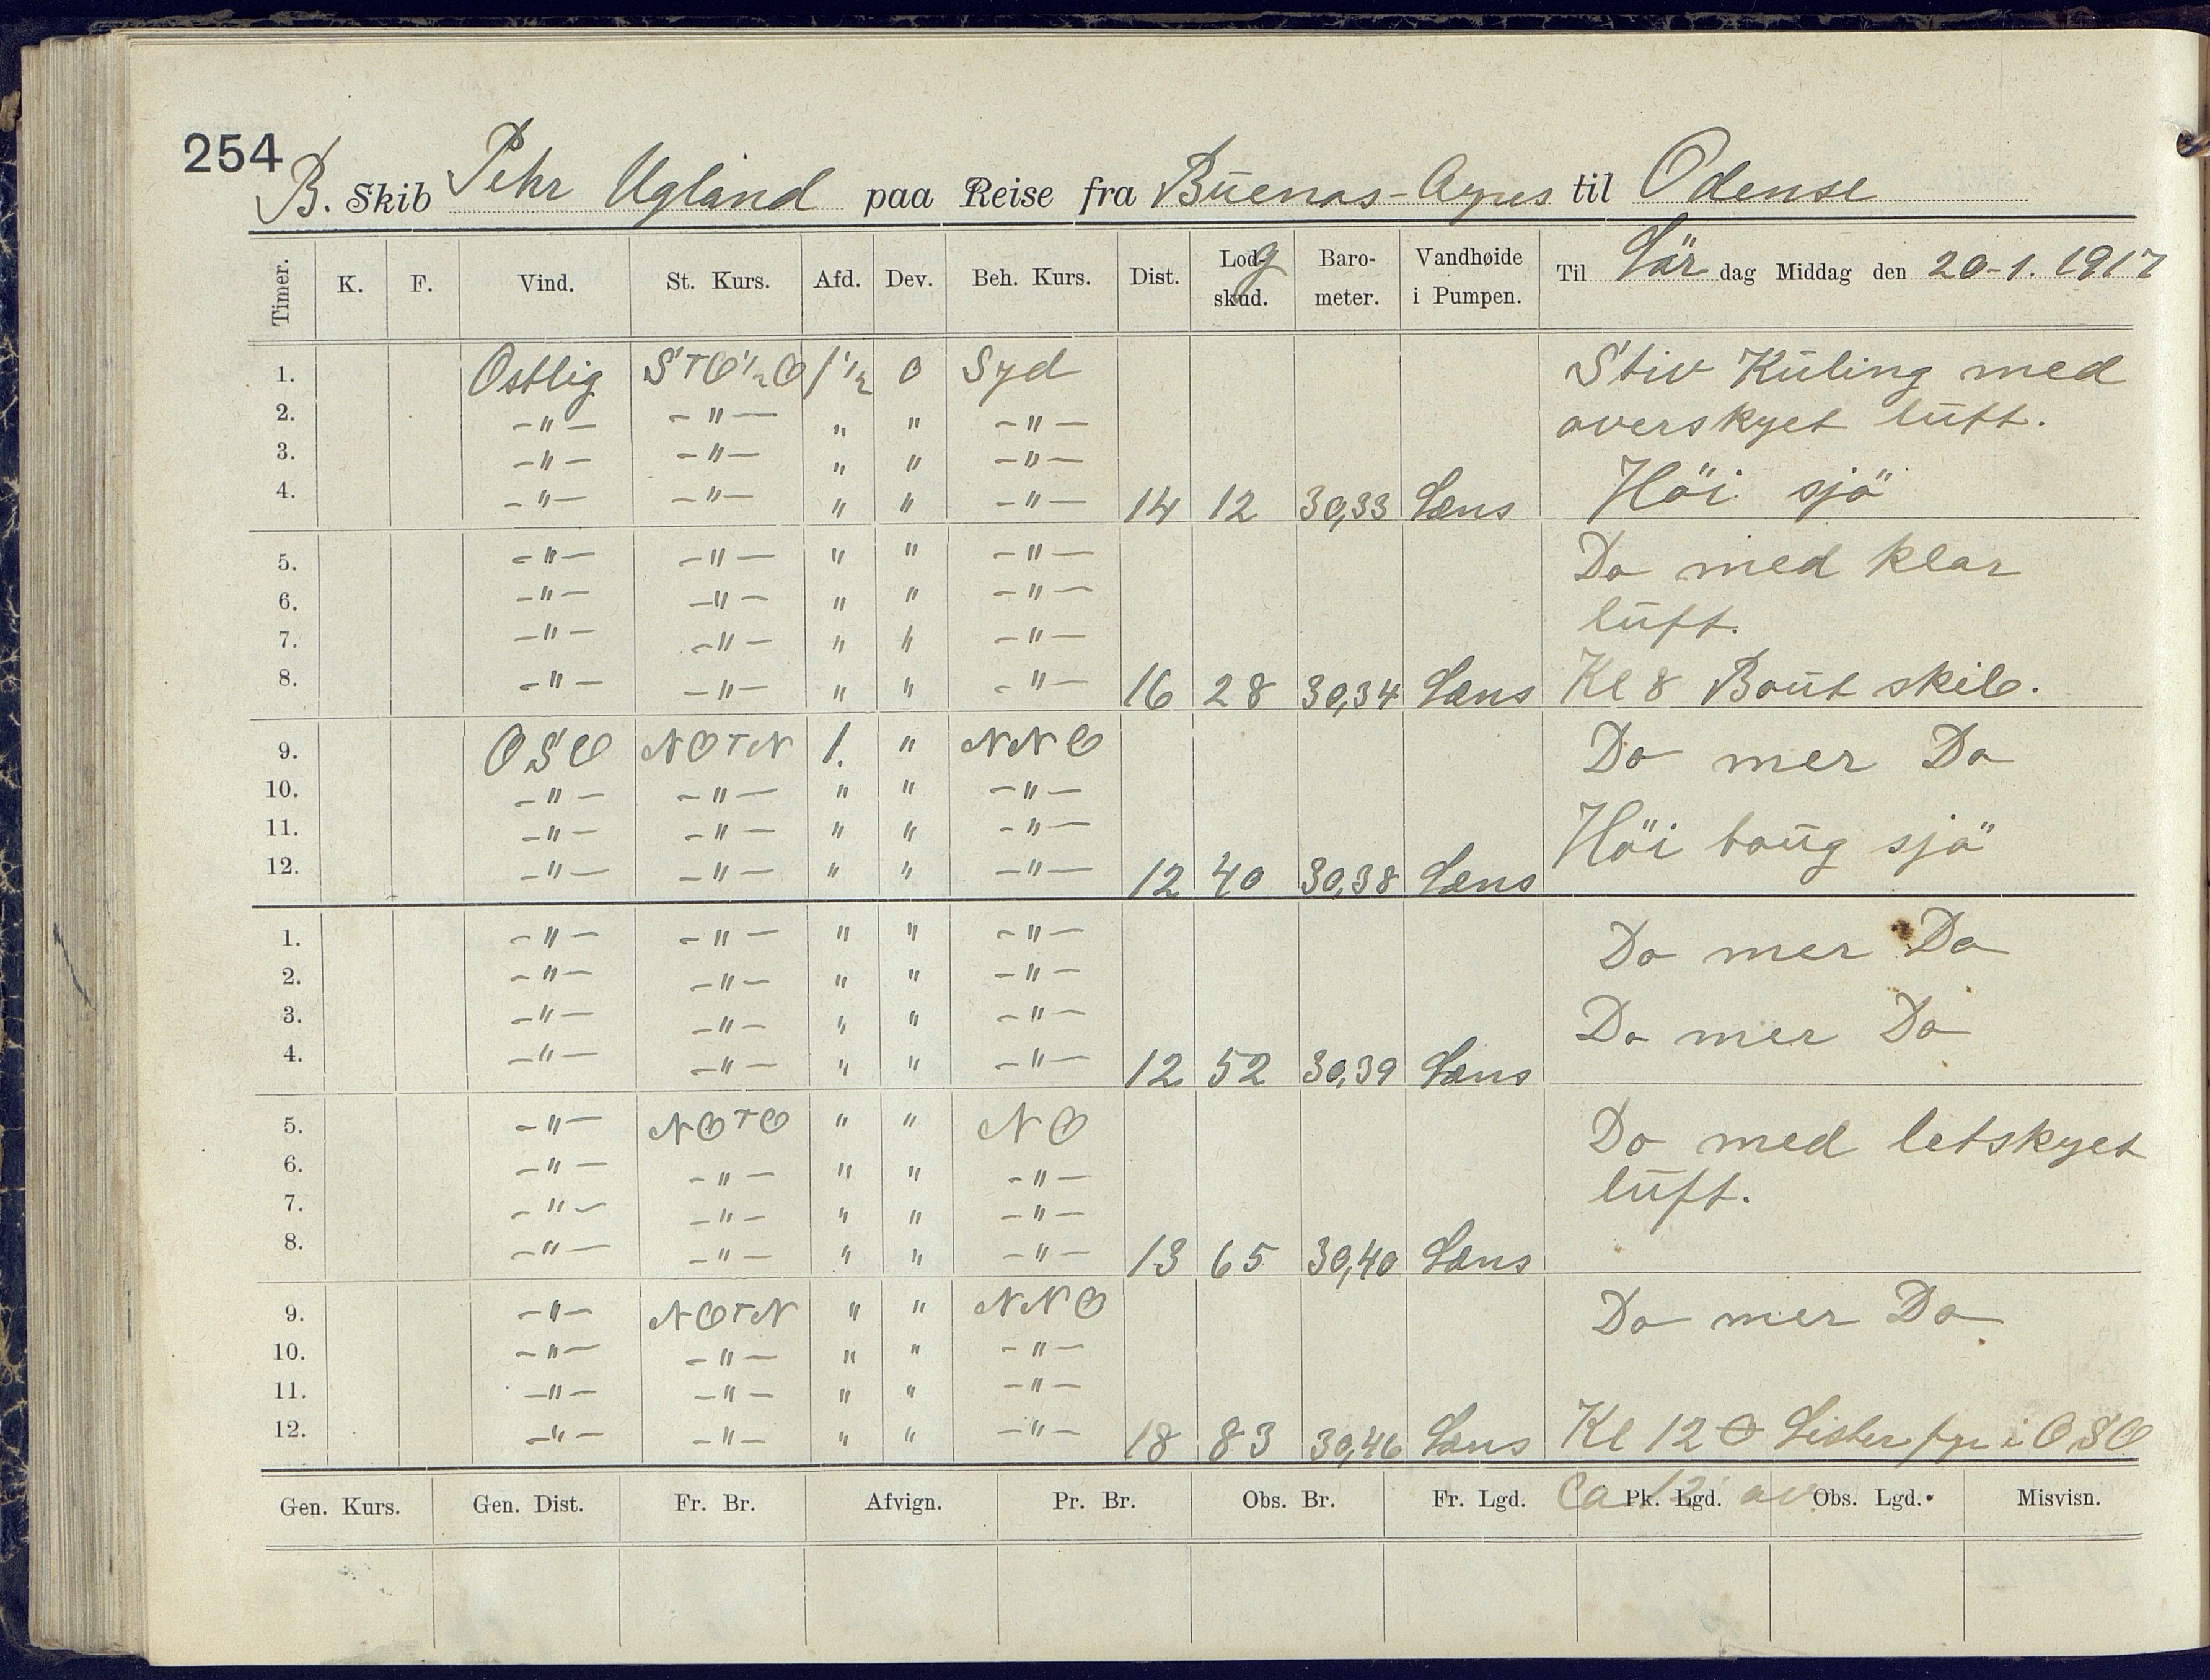 254
B. Skib Pehr Ugland paa Reise fra Buenos-Ayres til Odense
Timer. K. F. Vind. St. Kurs. Afd. Dev. Beh. Kurs. Dist. Logskud. Barometer. Vandhøide i Pumpen. Til Lördag Middag den 20-1. 1917
1. Ostlig STO½O 1½ 0 Syd Stiv Kūling med
2. -"- -"- " " -"- overskyet lūft.
3. -"- -"- " " -"-
4. -"- -"- " " -"- 14 12 30,33 Læns Höi sjö
5. -"- -"- " " -"- Do med klar
6. -"- -"- " " -"- lūft.
7. -"- -"- " " -"-
8. -"- -"- " " -"- 16 28 30,34 Læns Kl 8 Boūt skib.
9. OSO NOTN 1. " NNO Do mer Do
10. -"- -"- " " -"-
11. -"- -"- " " -"- Höi boūg sjö
12. -"- -"- " " -"- 12 40 30,38 Læns
1. -"- -"- " " -"- Do mer Do
2. -"- -"- " " -"-
3. -"- -"- " " -"- Do mer Do
4. -"- -"- " " -"- 12 52 30,39 Læns
5. -"- NOTO " " NO Do med letskyet
6. -"- -"- " " -"- lūft.
7. -"- -"- " " -"-
8. -"- -"- " " -"- 13 65 30,40 Læns
9. -"- NOTN " " NNO Do mer Do
10. -"- -"- " " -"-
11. -"- -"- " " -"-
12. -"- -"- " " -"- 18 83 30,46 Læns Kl 12 Lister fyr i OSO
Ca 12 av
Gen. Kurs. Gen. Dist. Fr. Br. Afvign. Pr. Br. Obs. Br. Fr. Lgd. Pk. Lgd. Obs. Lgd. Misvisn.